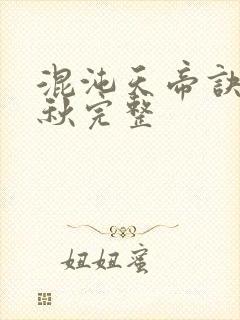 混沌天帝诀
秋完整
妞妞蜜